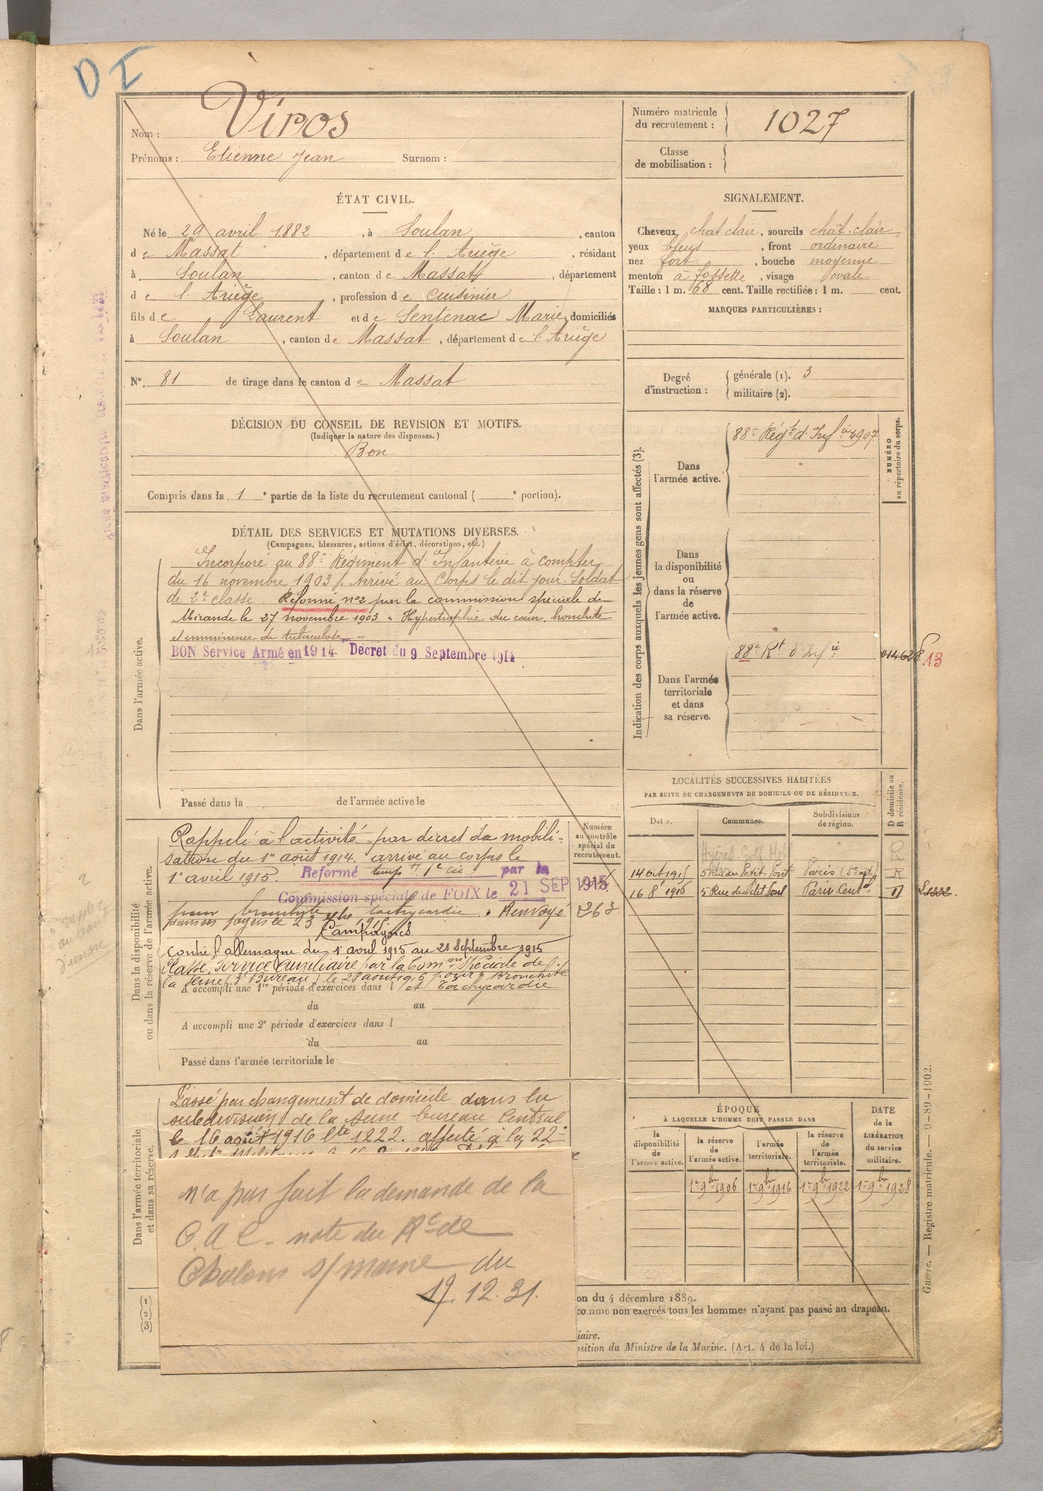 D I
Nom : Viros
Prénoms : Etienne Jean Surnom :
Numéro matricule du recrutement : 1027
Classe de mobilisation :
ÉTAT CIVIL.
Né le 29 avril 1882, à Soulan, canton
de Massat, département de l'Ariège, résidant
à Soulan, canton de Massat, département
de l'Ariège, profession de cuisinier
fils de Laurent et de Sentenac Marie, domiciliés
à Soulan, canton de Massat, département de l'Ariège
N°. 81 de tirage dans le canton de Massat
SIGNALEMENT.
Cheveux chat clair, sourcils chat. clair
yeux bleus, front ordinaire
nez fort, bouche moyenne
menton à fossette, visage ovale
Taille : 1 m. 68 cent. Taille rectifiée : 1 m. cent.
MARQUES PARTICULIÈRES :
Degré d'instruction : générale (1). 3
militaire (2).
DÉCISION DU CONSEIL DE REVISION ET MOTIFS.
(Indiquer la nature des dispenses.)
Bon
Compris dans la 1e partie de la liste du recrutement cantonal ( e portion).
DÉTAIL DES SERVICES ET MUTATIONS DIVERSES.
(Campagnes, blessures, actions d'éclat, décorations, etc.)
Dans l'armée active.
Incorporé au 88e Régiment d'Infanterie à compter
du 16 novembre 1903. Arrivé au Corps le dit jour. Soldat
de 2e classe. Réformé n°2 par la commission spéciale de
Mirande le 27 novembre 1903 « Hypertrophie du cœur, bronchite
et imminence de tuberculose »
BON Service Armé en 1914 Decret du 9 Septembre 1914
Passé dans la de l'armée active le
Indication des corps auxquels les jeunes gens sont affectés (3).
NUMÉRO au répertoire du corps.
Dans l'armée active.
88e Régt d'Infie 4907
Dans la disponibilité ou dans la réserve de l'armée active.
Dans l'armée territoriale et dans sa réserve.
88e Rt d'Infie
014628
13
LOCALITÉS SUCCESSIVES HABITÉES
PAR SUITE DE CHANGEMENTS DE DOMICILE OU DE RÉSIDENCE.
Dates. Communes. Subdivisions de région. D domicile ou R résidence.
14 oct 1915 5 Rue du Petit Pont Paris R
16 8 1916 5 Rue du Petit Pont Paris Cent D
Dans la disponibilité ou dans la réserve de l'armée active.
Numéro au contrôle spécial du recrutement.
Rappelé à l'activité par décret de mobili-
sation du 1er août 1914. arrivé au corps le
1er avril 1915. Reformé temp par la
Commission spéciale de FOIX le 21 SEP 1915
pour bronchite tachycardie. Renvoyé
dans ses foyers le 23
Campagnes
Contre l'allemagne du 1er avril 1915 au 21 Septembre 1915
Classé service auxiliaire par la Com Spéciale de
la Seine, 3e Bureau, le 28 août pour Bronchite
et Tachycardie
A accompli une 1re période d'exercices dans l
du au
A accompli une 2e période d'exercices dans l
du au
Passé dans l'armée territoriale le
Dans l'armée territoriale et dans sa réserve.
Passé par changement de domicile dans la
subdivision de la Seine bureau Central
le 16 août 1916 Lte 1822. affecté à la 22e
n'a pas fait la demande de la
C.A.C. note du Rt de
Chalons s/ marne du
19.12.31.
ÉPOQUE
À LAQUELLE L'HOMME DOIT PASSER DANS
DATE de la LIBÉRATION du service militaire.
la disponibilité de l'armée active. la réserve de l'armée active. l'armée territoriale. la réserve de l'armée territoriale.
1er 9bre 1906 1er 9bre 1916 1er 9bre 1922 1er 9bre 1928
(1)
(2)
(3)
on du 4 décembre 1889.
comme non exercés tous les hommes n'ayant pas passé au drapeau.
iaire.
sition du Ministre de la Marine. (Art. 4 de la loi.)
Guerre. — Registre matricule. — 9-89-1902.